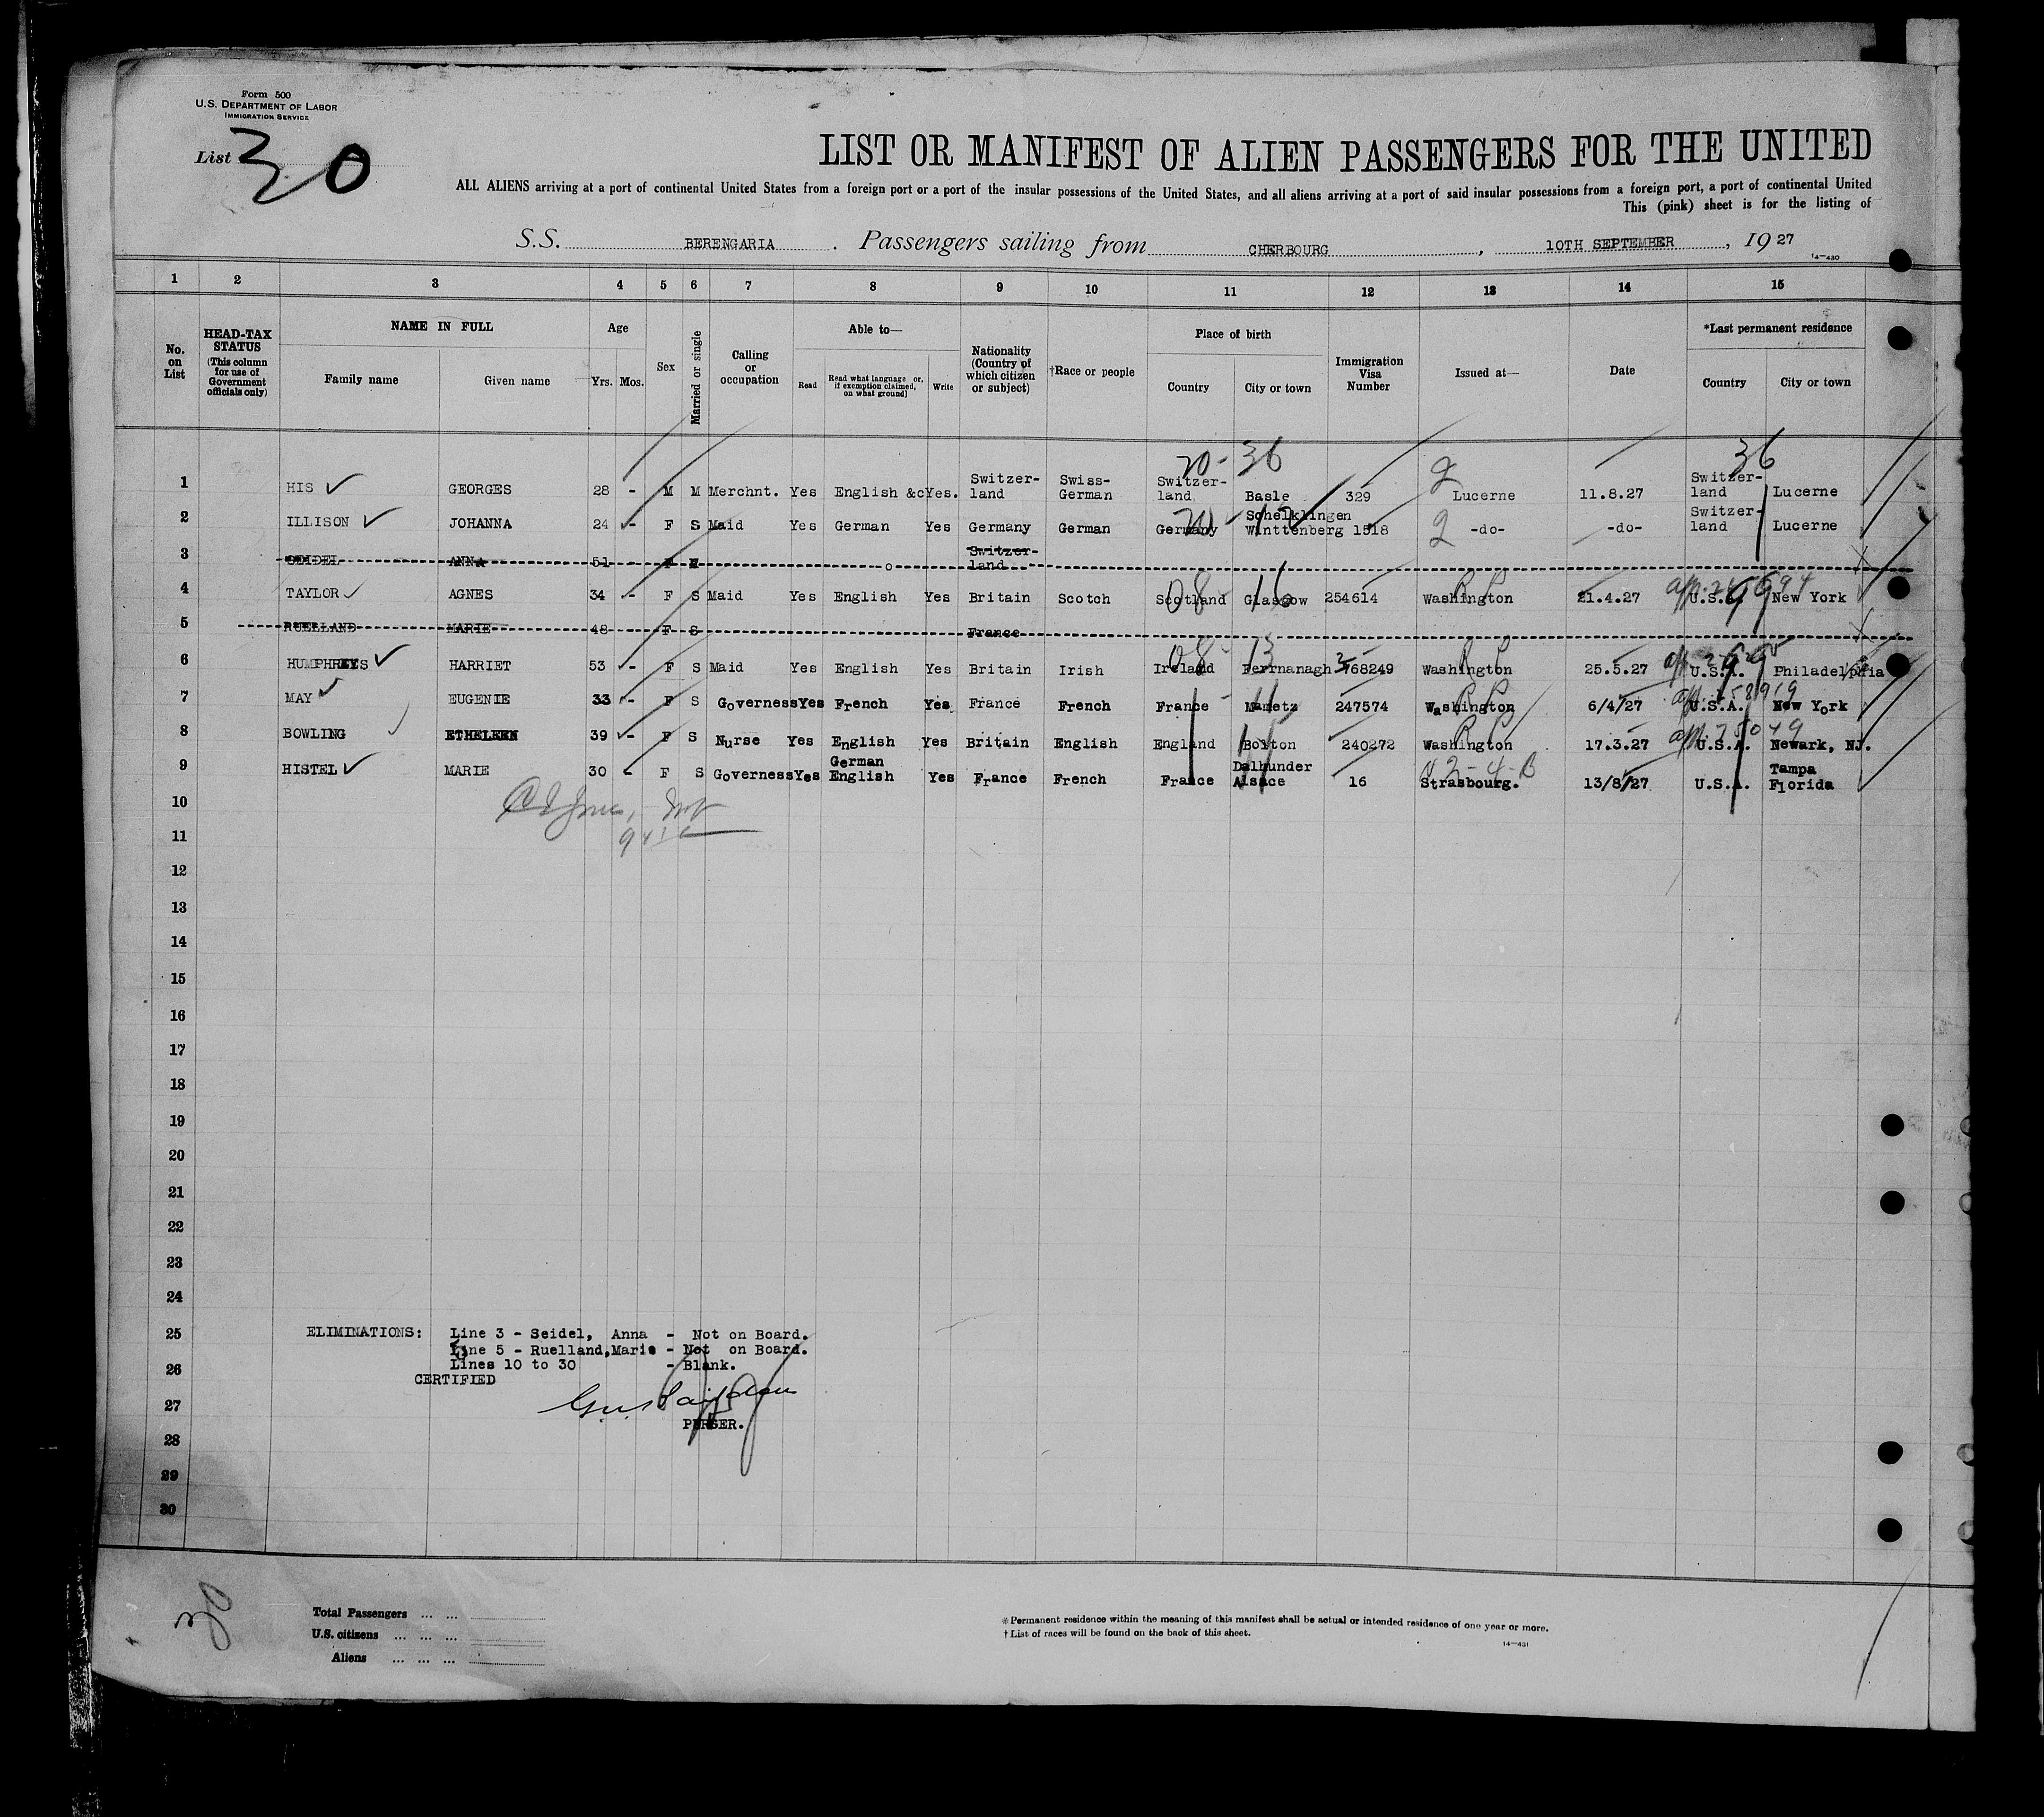 Form 500
U.S. DEPARTMENT OF LABOR
IMMIGRATION SERVICE
List 30
LIST OR MANIFEST OF ALIEN PASSENGERS FOR THE UNITED
ALL ALIENS arriving at a port of continental United States from a foreign port or a port of the insular possessions of the United States, and all aliens arriving at a port of said insular possessions from a foreign port, a port of continental United
This (pink) sheet is for the listing of
S.S. BERENGARIA. Passengers sailing from CHERBOURG, 10TH SEPTEMBER, 1927
14—430
1 2 3 4 5 6 7 8 9 10 11 12 13 14 15
No. on List
HEAD-TAX STATUS (This column for use of Government officials only)
NAME IN FULL
Family name
Given name
Age
Yrs. Mos.
Sex
Married or single
Calling or occupation
Able to—
Read
Read what language or, if exemption claimed, on what ground)
Write
Nationality (Country of which citizen or subject)
†Race or people
Place of birth
Country
City or town
Immigration Visa Number
Issued at—
Date
*Last permanent residence
Country
City or town
20- 36 36
1 HIS GEORGES 28 - M M Merchnt. Yes English &c Yes. Switzer-land Swiss-German Switzer-land Basle 329 2 Lucerne 11.8.27 Switzer-land Lucerne
2 ILLISON JOHANNA 24 - F S Maid Yes German Yes Germany German Germany Schelklingen Winttenberg 1518 2 -do- -do- Switzer-land Lucerne
3 SEIDEL ANNA 51 - F M Switzer-land
4 TAYLOR AGNES 34 - F S Maid Yes English Yes Britain Scotch Scotland 08 Glasgow 16 254614 Washington 21.4.27 U.S.A. New York
5 RUELLAND MARIE 48 - F S France
6 HUMPHREYS HARRIET 53 - F S Maid Yes English Yes Britain Irish Ireland 08 Fermanagh 13 768249 Washington 25.5.27 U.S.A. Philadelphia
7 MAY EUGENIE 33 - F S Governess Yes French Yes France French France Mametz 247574 Washington 6/4/27 U.S.A. New York
8 BOWLING ETHELEEN 39 - F S Nurse Yes English Yes Britain English England Bolton 240272 Washington 17.3.27 U.S.A. Newark, NJ.
9 HISTEL MARIE 30 - F S Governess Yes German English Yes France French France Dalhunder Alsace 16 Strasbourg. 13/8/27 U.S.A. Tampa Florida
10
11
12
13
14
15
16
17
18
19
20
21
22
23
24
25 ELIMINATIONS: Line 3 - Seidel, Anna - Not on Board.
Line 5 - Ruelland, Marie - Not on Board.
26 Lines 10 to 30 - Blank.
CERTIFIED
27
PURSER.
28
29
30
30
Total Passengers ... ...
U.S. citizens ... ... ...
Aliens ... ... ...
*Permanent residence within the meaning of this manifest shall be actual or intended residence of one year or more.
†List of races will be found on the back of this sheet.
14—431